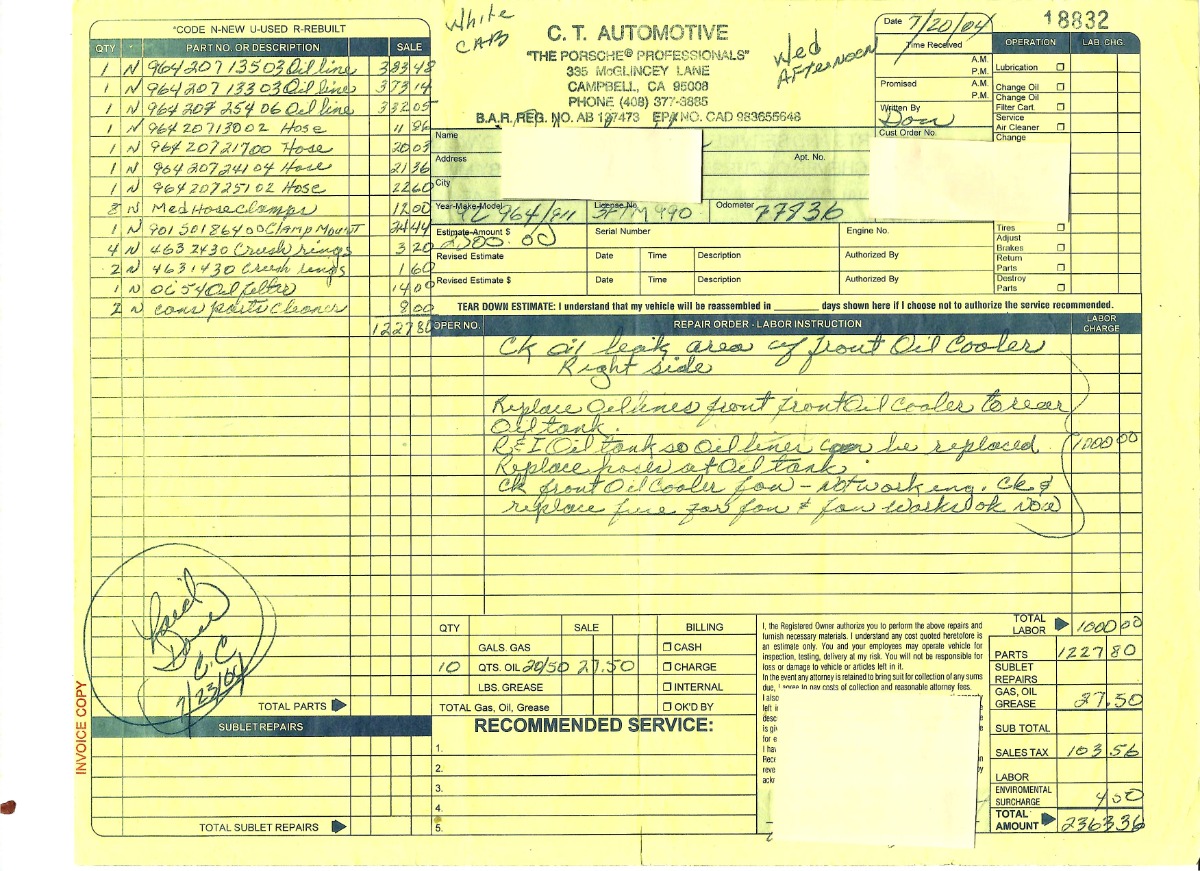 *CODE N-NEW U-USED R-REBUILT
QTY PART NO. OR DESCRIPTION SALE
1 N 964 207 135 03 Oil line 383 48
1 N 964 207 133 03 Oil line 373 14
1 N 964 207 254 06 Oil line 332 05
1 N 964 207 130 02 Hose 11 86
1 N 964 207 217 00 Hose 20 03
1 N 964 207 241 04 Hose 21 36
1 N 964 207 251 02 Hose 22 60
8 N Med Hose Clamps 12 00
1 N 901 501 864 00 Clamp Mount 24 44
4 N 463 2430 Crush rings 3 20
2 N 463 1430 Crush rings 1 60
1 N Oil Filter 14 00
2 N cans parts cleaner 8 00
1227 80
White
CAB
C. T. AUTOMOTIVE
"THE PORSCHE® PROFESSIONALS"
335 McGLINCEY LANE
CAMPBELL, CA 95008
PHONE (408) 377-3885
B.A.R. REG. NO. AB 137473 EPA NO. CAD 983655648
Wed
AFTERNOON
Date 7/20/04
18832
Time Received
A.M.
P.M.
Promised
A.M.
P.M.
Written By
Don
Cust Order No.
OPERATION LAB. CHG.
Lubrication
Change Oil
Change Oil
Filter Cart.
Service
Air Cleaner
Change
Tires
Adjust
Brakes
Return
Parts
Destroy
Parts
Name
Address Apt. No.
City
Year-Make-Model License No. Odometer
92 964/911 77836
Estimate-Amount $ Serial Number Engine No.
2500.00
Revised Estimate Date Time Description Authorized By
Revised Estimate $ Date Time Description Authorized By
TEAR DOWN ESTIMATE: I understand that my vehicle will be reassembled in ________ days shown here if I choose not to authorize the service recommended.
OPER NO. REPAIR ORDER - LABOR INSTRUCTION LABOR CHARGE
Ck oil leak area of front Oil Cooler
Right side
Replace Oil lines front front Oil Cooler to rear
Oil tank.
R&I Oil tank so Oil lines can be replaced. 1000 00
Replace hoses at Oil tank
Ck front Oil Cooler fan - not working. Ck &
replace fuse for fan & fan works ok now
Paid
C.C
7/23/04
INVOICE COPY
TOTAL PARTS
SUBLET REPAIRS
TOTAL SUBLET REPAIRS
QTY SALE BILLING
GALS. GAS CASH
10 QTS. OIL 20/50 27.50 CHARGE
LBS. GREASE INTERNAL
TOTAL Gas, Oil, Grease OK'D BY
RECOMMENDED SERVICE:
1.
2.
3.
4.
5.
I, the Registered Owner authorize you to perform the above repairs and
furnish necessary materials. I understand any cost quoted heretofore is
an estimate only. You and your employees may operate vehicle for
inspection, testing, delivery at my risk. You will not be responsible for
loss or damage to vehicle or articles left in it.
In the event any attorney is retained to bring suit for collection of any sums
due, I agree to pay costs of collection and reasonable attorney fees.
I also
left i
desc
is gi
for e
I ha
Rece
reve
ackr
TOTAL LABOR 1000 00
PARTS 1227 80
SUBLET REPAIRS
GAS, OIL GREASE 27.50
SUB TOTAL
SALES TAX 103.56
LABOR
ENVIROMENTAL SURCHARGE 4 50
TOTAL AMOUNT 2363 36